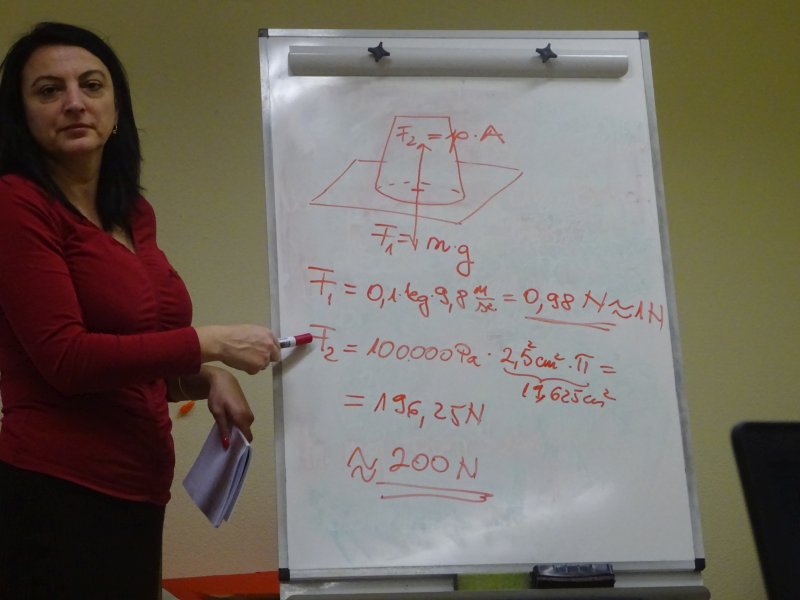 F₂ = p · A
F₁ = m · g
F₁ = 0,1 kg · 9,8 m/s = 0,98 N ≈ 1N
F₂ = 100.000 Pa · 2,5² cm² · π =
19,625 cm²
= 196,25 N
≈ 200 N